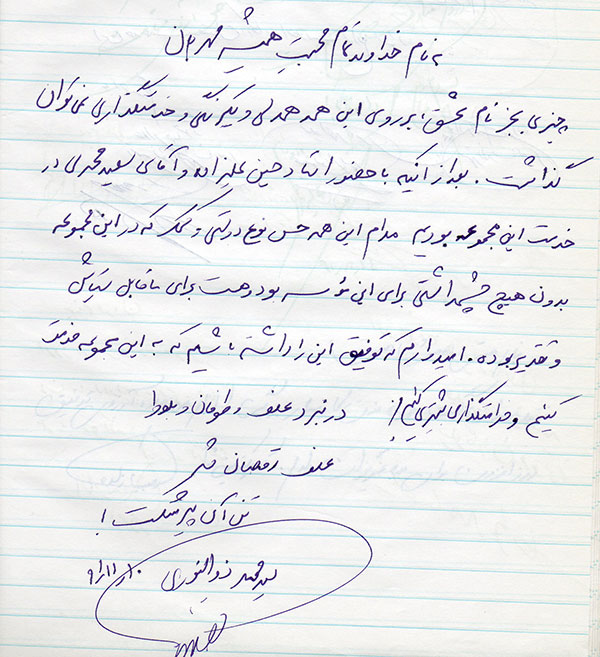 به نام خداوند تمام محبت همیشه مهربان
چیزی بجز نام عشق، بر روی این همه همدلی و یکرنگی و خدمتگذاری نمی‌توان
گذاشت. بعد از آنکه با حضور استاد حسین علیزاده و آقای سعید محمدی در
خدمت این مجموعه بودیم مدام این همه حس نوع دوستی و کمک که در این مجموعه
بدون هیچ چشمداشتی برای این مؤسسه بود و هست برای ما قابل ستایش
و تقدیر بوده. امیدوارم که توفیق این را داشته باشیم که به این مجموعه خدمت
کنیم و خدمتگذاری بیشتری کنیم!
در نبرد علف و طوفان و بلوط
علف رقصان شد
تن آن پیر شکست!
سید مجید ذوالنوری ۹۱/۱۱/۱۰